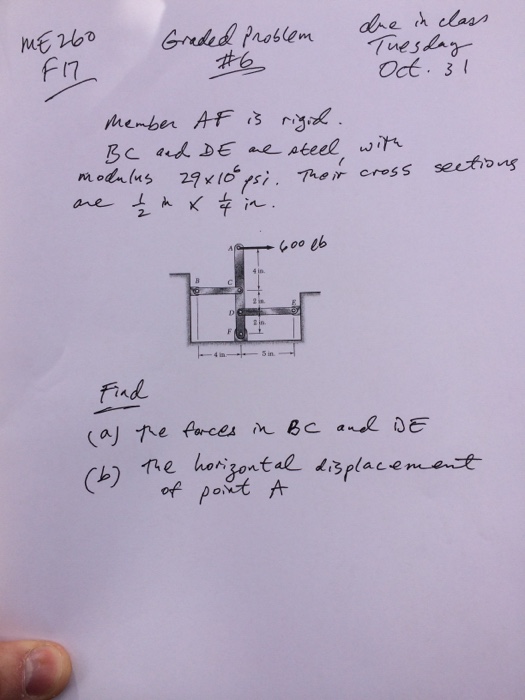 ME 260 Graded Problem due in class
F17 #6 Tuesday
Oct. 31
Member AF is rigid.
BC and DE are steel, with
modulus 29x10⁶ psi. Their cross sections
are 1/2 in x 1/4 in.
A 600 lb
4 in.
B C
2 in.
D E
2 in.
F
4 in. 5 in.
Find
(a) the forces in BC and DE
(b) the horizontal displacement
of point A